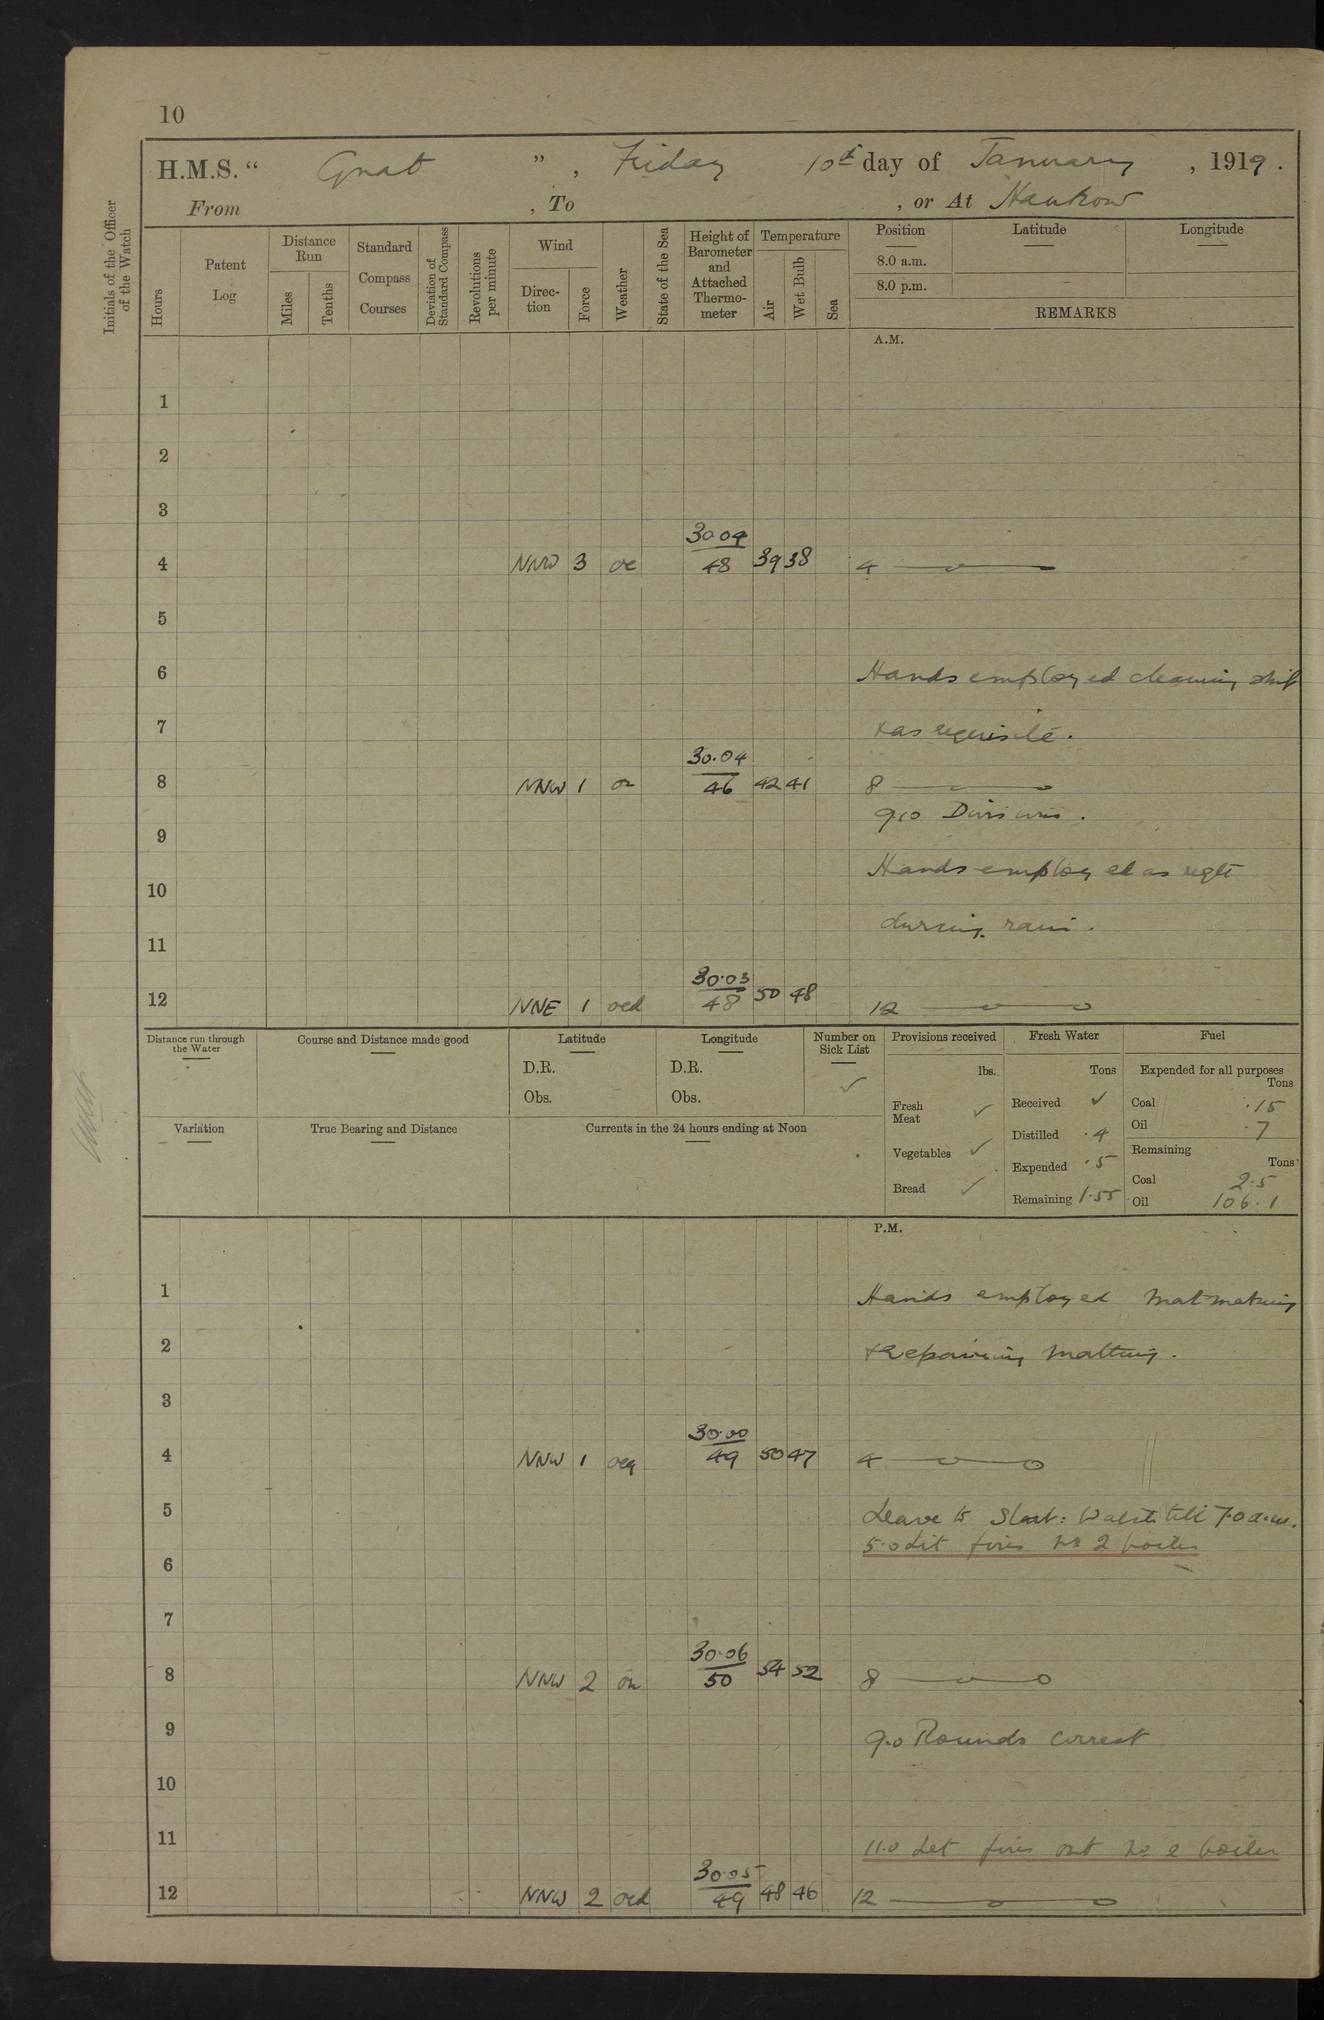 10
H.M.S. " Gnat ", Friday 10th day of January, 1919.
From , To , or At Hankow
Initials of the Officer of the Watch
Hours
Patent Log
Distance Run
Miles
Tenths
Standard Compass Courses
Deviation of Standard Compass
Revolutions per minute
Wind
Direc-tion
Force
Weather
State of the Sea
Height of Barometer and Attached Thermo-meter
Temperature
Air
Wet Bulb
Sea
Position
8.0 a.m.
8.0 p.m.
Latitude
Longitude
REMARKS
A.M.
1
2
3
4 NNW 3 oc 30.04 48 39 38 4
5
6 Hands employed cleaning ship
7 & as requisite.
8 NNW 1 30.04 46 42 41 8
9.0 Divisions.
9
Hands employed as reqte
10
during rain.
11
12 NNE 1 ocd 30.03 48 50 48 12
Distance run through the Water
Course and Distance made good
Latitude
D.R.
Obs.
Longitude
D.R.
Obs.
Number on Sick List ✓
Provisions received
lbs.
Fresh Meat ✓
Vegetables ✓
Bread ✓
Fresh Water
Tons
Received ✓
Distilled .4
Expended .5
Remaining 1.55
Fuel
Expended for all purposes
Tons
Coal .15
Oil .7
Remaining
Tons
Coal 2.5
Oil 106.1
Variation
True Bearing and Distance
Currents in the 24 hours ending at Noon
P.M.
1 Hands employed mat making
2 & repairing matting.
3
4 NNW 1 30.00 49 50 47 4
5 Leave to Starb: Watch till 7.0 a.m.
5.0 Lit fires No 2 boiler
6
7
8 NNW 2 30.06 50 54 52 8
9 9.0 Rounds correct
10
11 11.0 Let fires out No 2 boiler
12 NNW 2 ocd 30.05 49 48 46 12